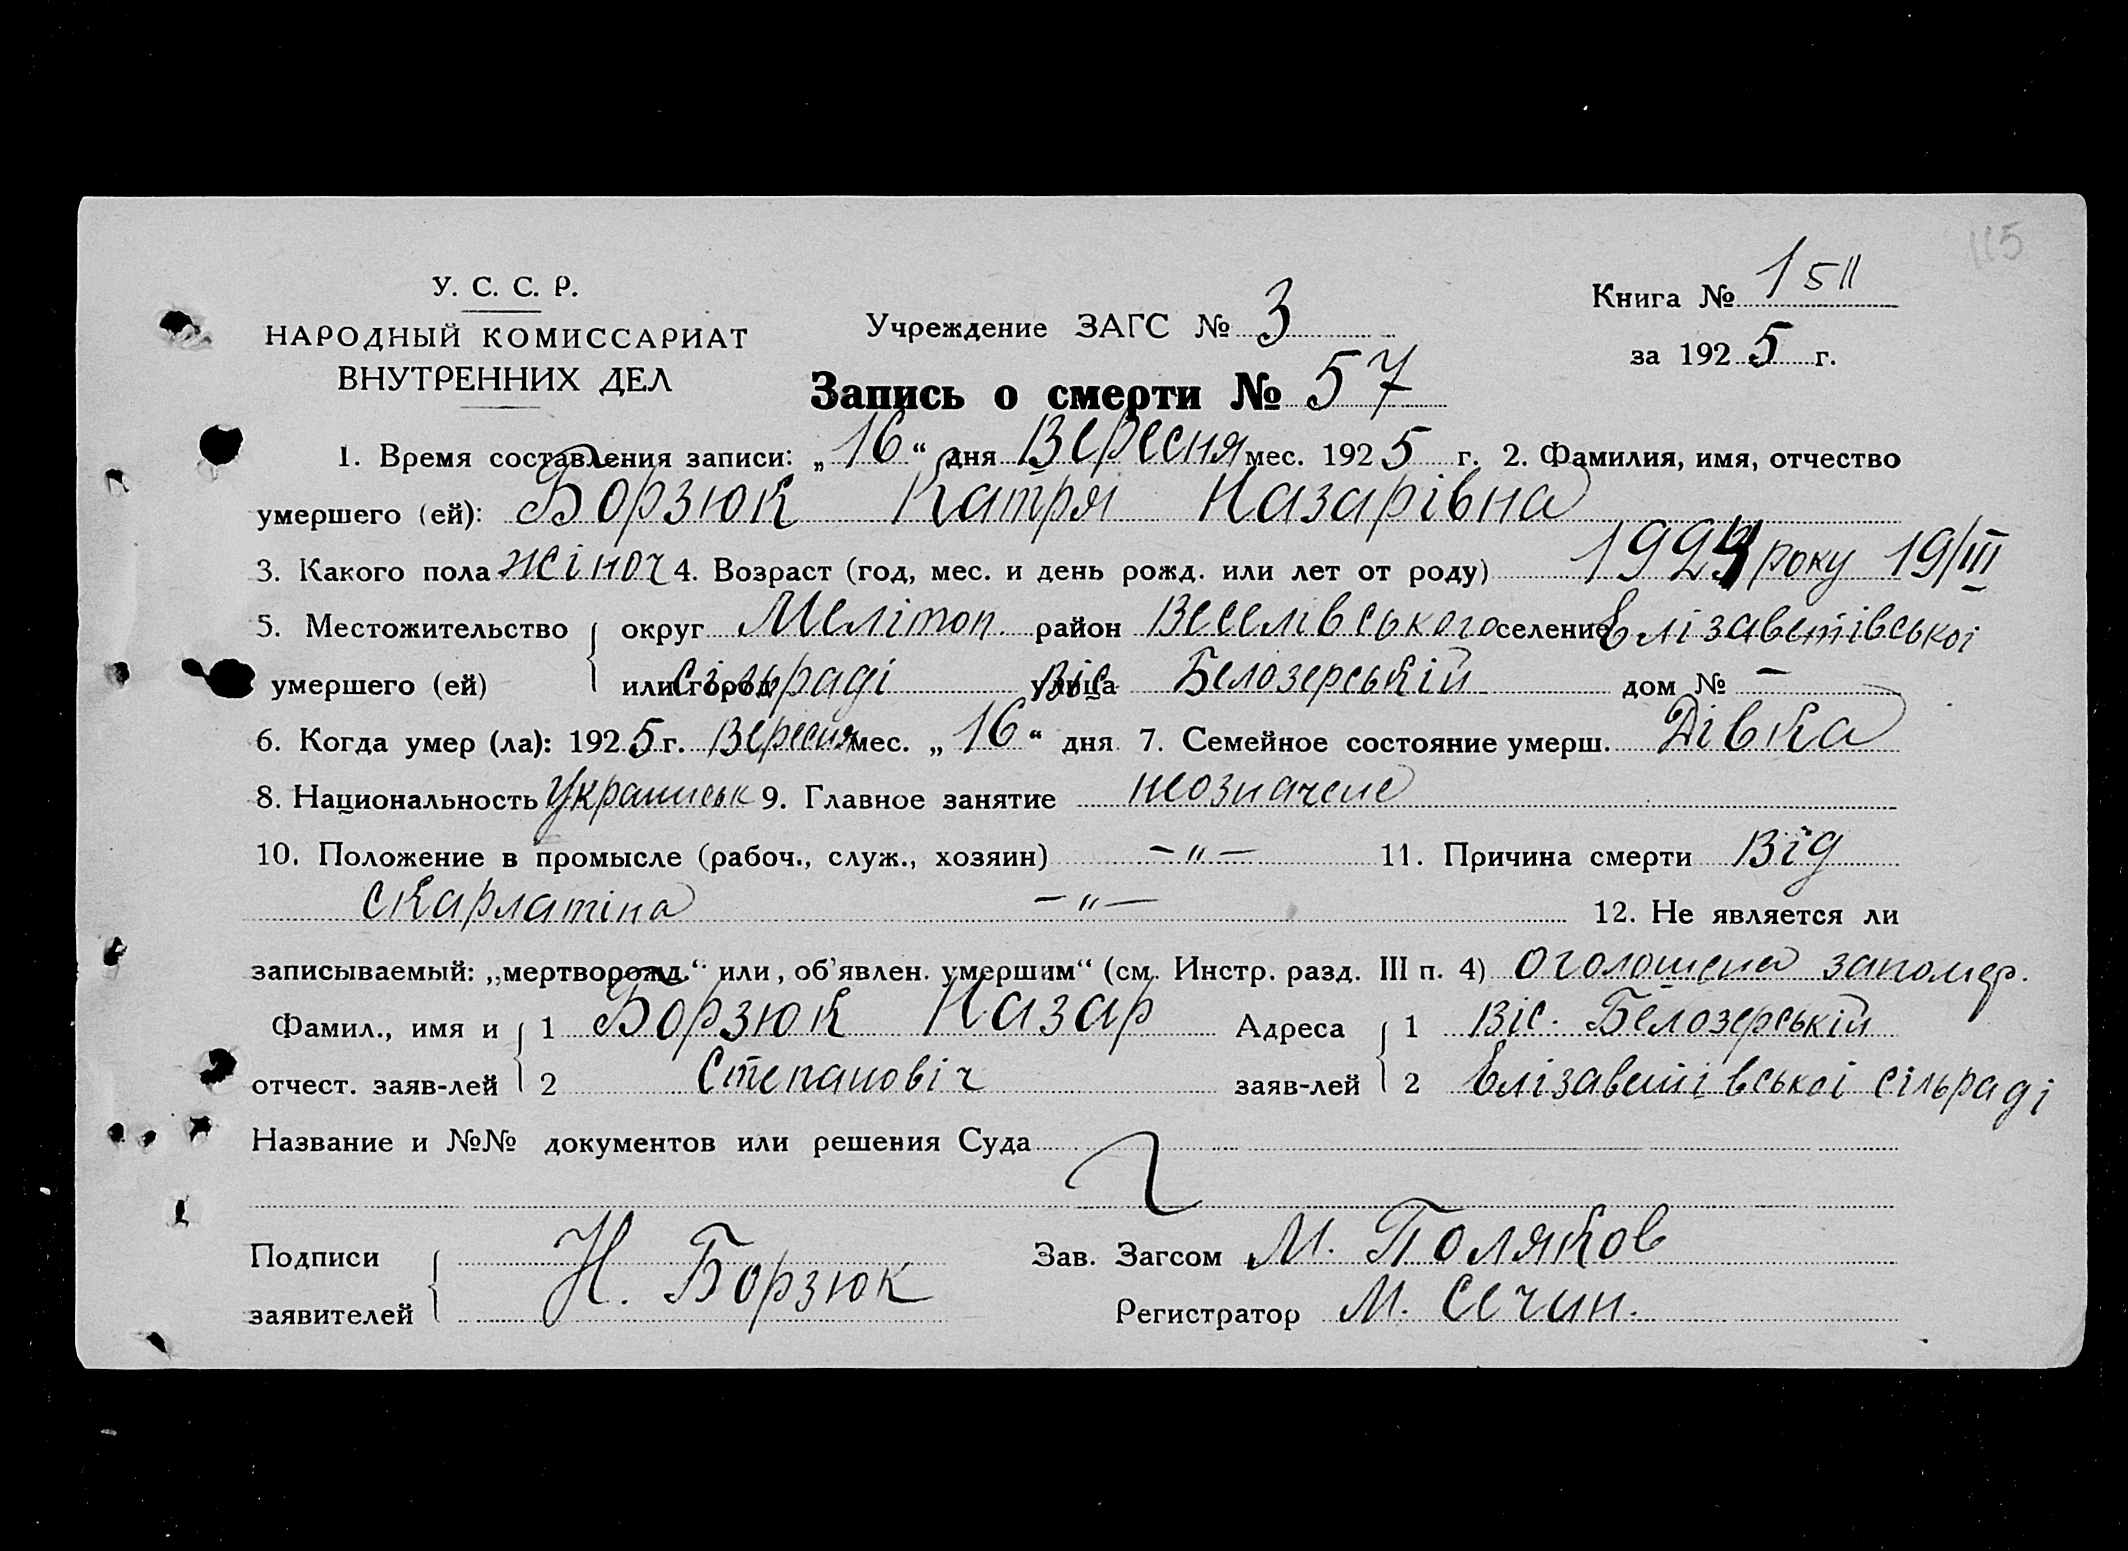 115
У. С. С. Р.
НАРОДНЫЙ КОМИССАРИАТ
ВНУТРЕННИХ ДЕЛ
Учреждение ЗАГС № 3
Книга № 1511
за 1925 г.
Запись о смерти № 57
1. Время составления записи: „16“ дня Вересня мес. 1925 г. 2. Фамилия, имя, отчество
умершего (ей): Борзюк Катря Назарівна
3. Какого пола жіноч 4. Возраст (год, мес. и день рожд. или лет от роду) 1924 року 19/III
5. Местожительство округ Мелітоп. район Веселівського селение Елізаветівської
умершего (ей) или город сільраді улица Віс. Белозерській дом № —
6. Когда умер (ла): 1925 г. Вересня мес. „16“ дня 7. Семейное состояние умерш. Дівка
8. Национальность Українськ 9. Главное занятие неозначене
10. Положение в промысле (рабоч., служ., хозяин) —"— 11. Причина смерти Від
скарлатіна —"— 12. Не является ли
записываемый: „мертворожд.“ или „об'явлен. умершим“ (см. Инстр. разд. III п. 4) оголошена запомер.
Фамил., имя и 1 Борзюк Назар Адреса 1 Віс. Белозерській
отчест. заяв-лей 2 Степановіч заяв-лей 2 Елізаветівської сільраді
Название и №№ документов или решения Суда
Подписи Н. Борзюк Зав. Загсом М. Поляков
заявителей Регистратор М. Сечин.